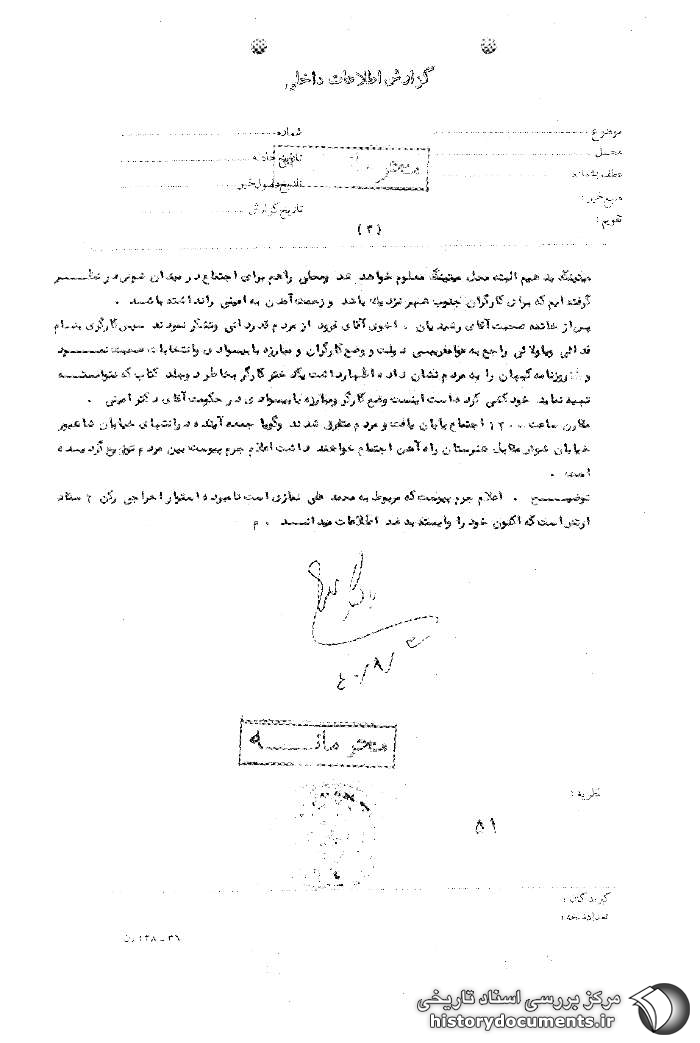 گزارش اطلاعات داخلی
موضوع
شماره
محل
تاریخ حادثه
عطف بشماره
تاریخ وصول خبر
منبع خبر :
تاریخ گزارش
تقویم :
محرمانه
(۲)
میتینگ بدهیم البته محل میتینگ معلوم خواهد شد ومحلی راهم برای اجتماع در میدان شوش در نظر
گرفته ایم که برای کارگران جنوب شهر نزدیک باشد و زحمت آمدن به اینجا رانداشته باشند .
پس از خاتمه صحبت آقای رشیدیان ، اخوی آقای فرود از مردم قدردانی وتشکر نمودند سپس کارگری بنام
فدائی بیاناتی راجع به دولت و وضع کارگران و مبارزه با بیسوادی وانتخابات صحبت نمود
و روزنامه کیهان را به مردم نشان داده اظهارداشت یک دختر کارگر بخاطر دوجلد کتاب که نتوانسته
تهیه نماید خودکشی کرده است اینست وضع کارگر ومبارزه با بیسوادی در حکومت آقای دکتر امینی .
مقارن ساعت ۱۲۰۰ اجتماع پایان یافت و مردم متفرق شدند وگویا جمعه آینده در انتهای خیابان شاهپور
خیابان شوش مقابل هنرستان راه آهن اجتماع خواهند داشت اعلام جرم پیوست بین مردم توزیع گردیده
است .
توضیح . اعلام جرم پیوست که مربوط به محمد علی نمازی است نامبرده استوار اخراجی رکن ۲ ستاد
ارتش است که اکنون خود را وابسته به ضد اطلاعات میدانند . م
۴۰/۸/
محرمانه
نظریه :
۵۱
گیرندگان :
تعداد نسخه :
۳۶ - ۱۲۸
مرکز بررسی اسناد تاریخی
historydocuments.ir